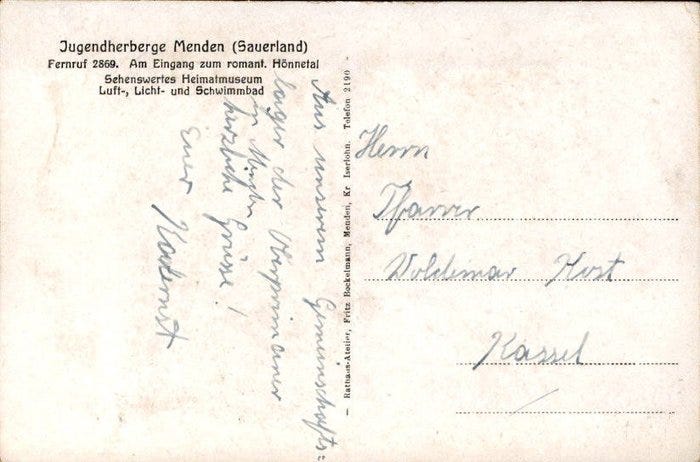 Jugendherberge Menden (Sauerland)
Fernruf 2869. Am Eingang zum romant. Hönnetal
Sehenswertes Heimatmuseum
Luft-, Licht- und Schwimmbad
Aus unserem Gemeinschafts=
lager der Oberprimaner
in
herzliche Grüsse!
Euer
— Rathaus-Atelier, Fritz Bockelmann, Menden, Kr Iserlohn. Telefon 2190 -
Herrn
Pfarrer
Woldemar
Kassel